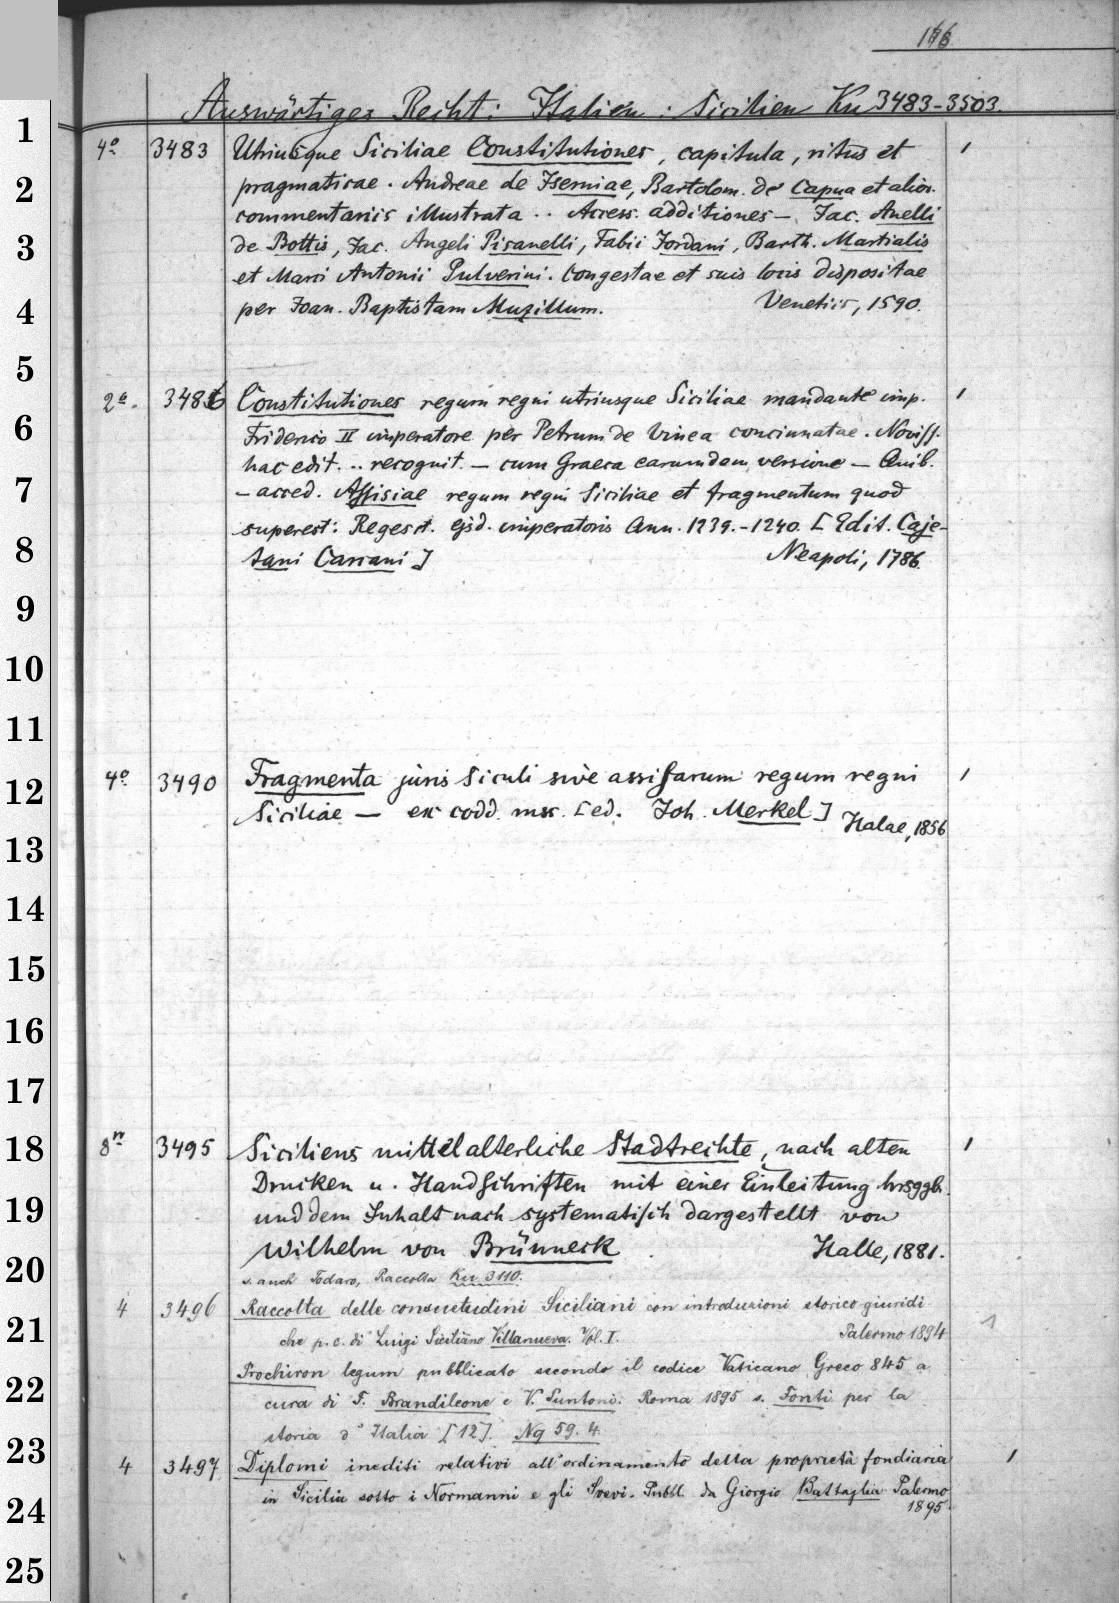 186
Auswärtiges Recht: Italien: Sicilien Ku 3483-3503
1
4º 3483 Utriusque Siciliae Constitutiones, capitula, ritus et /
2
pragmaticae. Andreae de Isernia, Bartolom. de Capua et alior.
commentariis illustrata .. Access. additiones — Jac. Anelli
3
de Bottis, Jac. Angeli Pisanelli, Fabii Jordani, Barth. Martialis
et Marci Antonii Pulverini. Congestae et suis locis dispositae
4
per Joan. Baptistam Muzillum. Venetiis, 1590.
5
2º. 3486 Constitutiones regum regni utriusque Siciliae mandante imp. /
6
Friderico II imperatore per Petrum de Vinea concinnatae. Noviss.
hac edit. .. recognit. — cum Graeca earumdem versione — Quib.
7
— acced. Assisiae regum regni Siciliae et fragmentum quod
superest: Regest. ejsd. imperatoris Ann. 1239.-1240. [Edit. Caje-
8
tani Carcani] Neapoli, 1786.
9
10
11
12
4º 3490 Fragmenta juris Siculi sive assisarum regum regni /
Siciliae — ex codd. mss. [ed. Joh. Merkel] Halae, 1856
13
14
15
16
17
18
8º 3495 Siciliens mittelalterliche Stadtrechte, nach alten /
Drucken u. Handschriften mit einer Einleitung hrsggb.
19
und dem Inhalt nach systematisch dargestellt von
Wilhelm von Brünneck. Halle, 1881.
20
s. auch Todaro, Raccolta Ku 3110.
4 3496 Raccolta delle consuetudini Siciliani con introduzioni storico-giuridi-
21
che p. c. di Luigi Siciliano Villanueva. Vol. I. Palermo 1894 1
Prochiron legum pubblicato secondo il codice Vaticano Greco 845 a
22
cura di F. Brandileone e V. Puntoni. Roma 1895 s. Fonti per la
storia d'Italia [12]. Nq 59. 4.
23
4 3497 Diplomi inediti relativi all'ordinamento della proprietà fondiaria /
in Sicilia sotto i Normanni e gli Svevi. Pubbl. da Giorgio Battaglia Palermo
24
1895
25